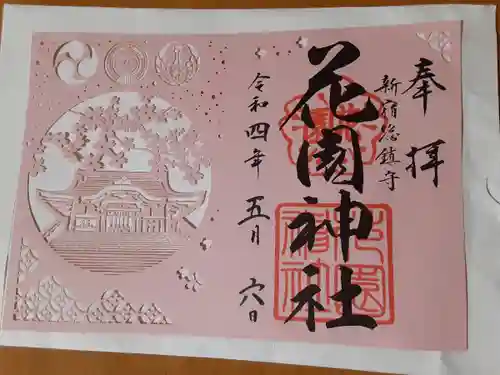 奉拝
新宿総鎮守
花園神社
令和四年 五月 六日